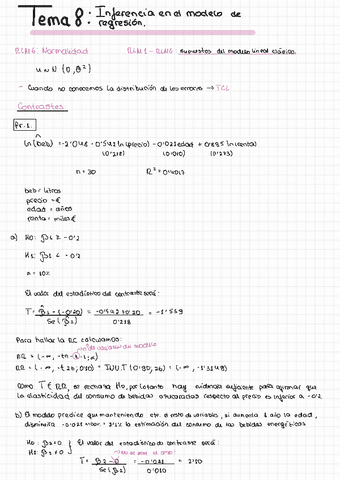 Tema 8: Inferencia en el modelo de
regresión.
RLM6: Normalidad RLM1 - RLM6 supuestos del modelo lineal clásico.
u ~ N (0, θ²)
- Cuando no conocemos la distribución de los errores → TCL
Contrastes
Pr.1.
ln(beb) = -2'048 - 0'542 ln(precio) - 0'021 edad + 0'895 ln(renta)
(0'218) (0'010) (0'273)
n = 30 R² =
beb = litros
precio = €
edad = años
renta = miles €
a) H0: β1 ≥ -0'2
H1: β1 < -0'2
α = 10%
El valor del estadístico del contraste será:
T = β1 - (-0'20) = -0'542 + 0'20 = -1'559
Se(β1) 0'218
Para hallar la RC calculamos:
nº de variables del modelo
RR = (-∞, -tn-k-1;α)
RR = (-∞, -t26,0'10) = INV.T (0'90, 26) = (-∞, -1'3148)
Como T ∈ RR, se rechaza H0, por lo tanto hay evidencia suficiente para afirmar que
la elasticidad del consumo de bebidas respecto al precio es inferior a -0'2
b) El modelo predice que manteniendo cte. el resto de variables, si aumenta 1 año la edad,
disminuirá -0'021·100 = 2'1% la estimación del consumo de las bebidas energéticas
H0: β2 = 0 } El valor del estadístico de contraste será:
H1: β2 ≠ 0
T = β2 - 0 = -0'021 = 2'10
Se(β2) 0'010